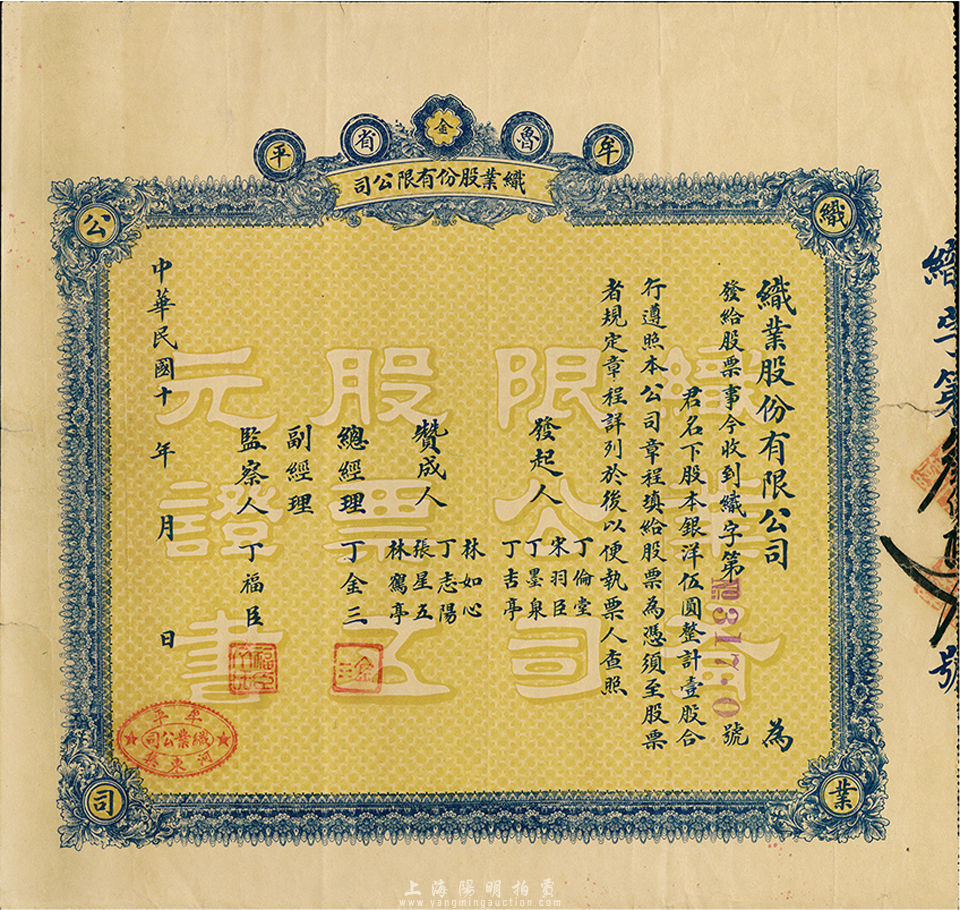 牟魯金省平
織業股份有限公司
織
業
公
司
織業股份有限公司 為
發給股票事今收到織字第№317·0號
君名下股本銀洋伍圓整計壹股合
行遵照本公司章程填給股票為憑須至股票
者規定章程詳列於後以便執票人查照
發起人
丁倫堂
宋羽臣
丁墨泉
丁吉亭
贊成人
林如心
丁志陽
張星五
林鴛亭
總經理 丁金三
金三
副經理
監察人 丁福臣
中華民國十 年 月 日
織業有
限公司
股票五
元證書
牟平
織業公司
河東寨
織字第
號
上海陽明拍賣
www.yangmingauction.com